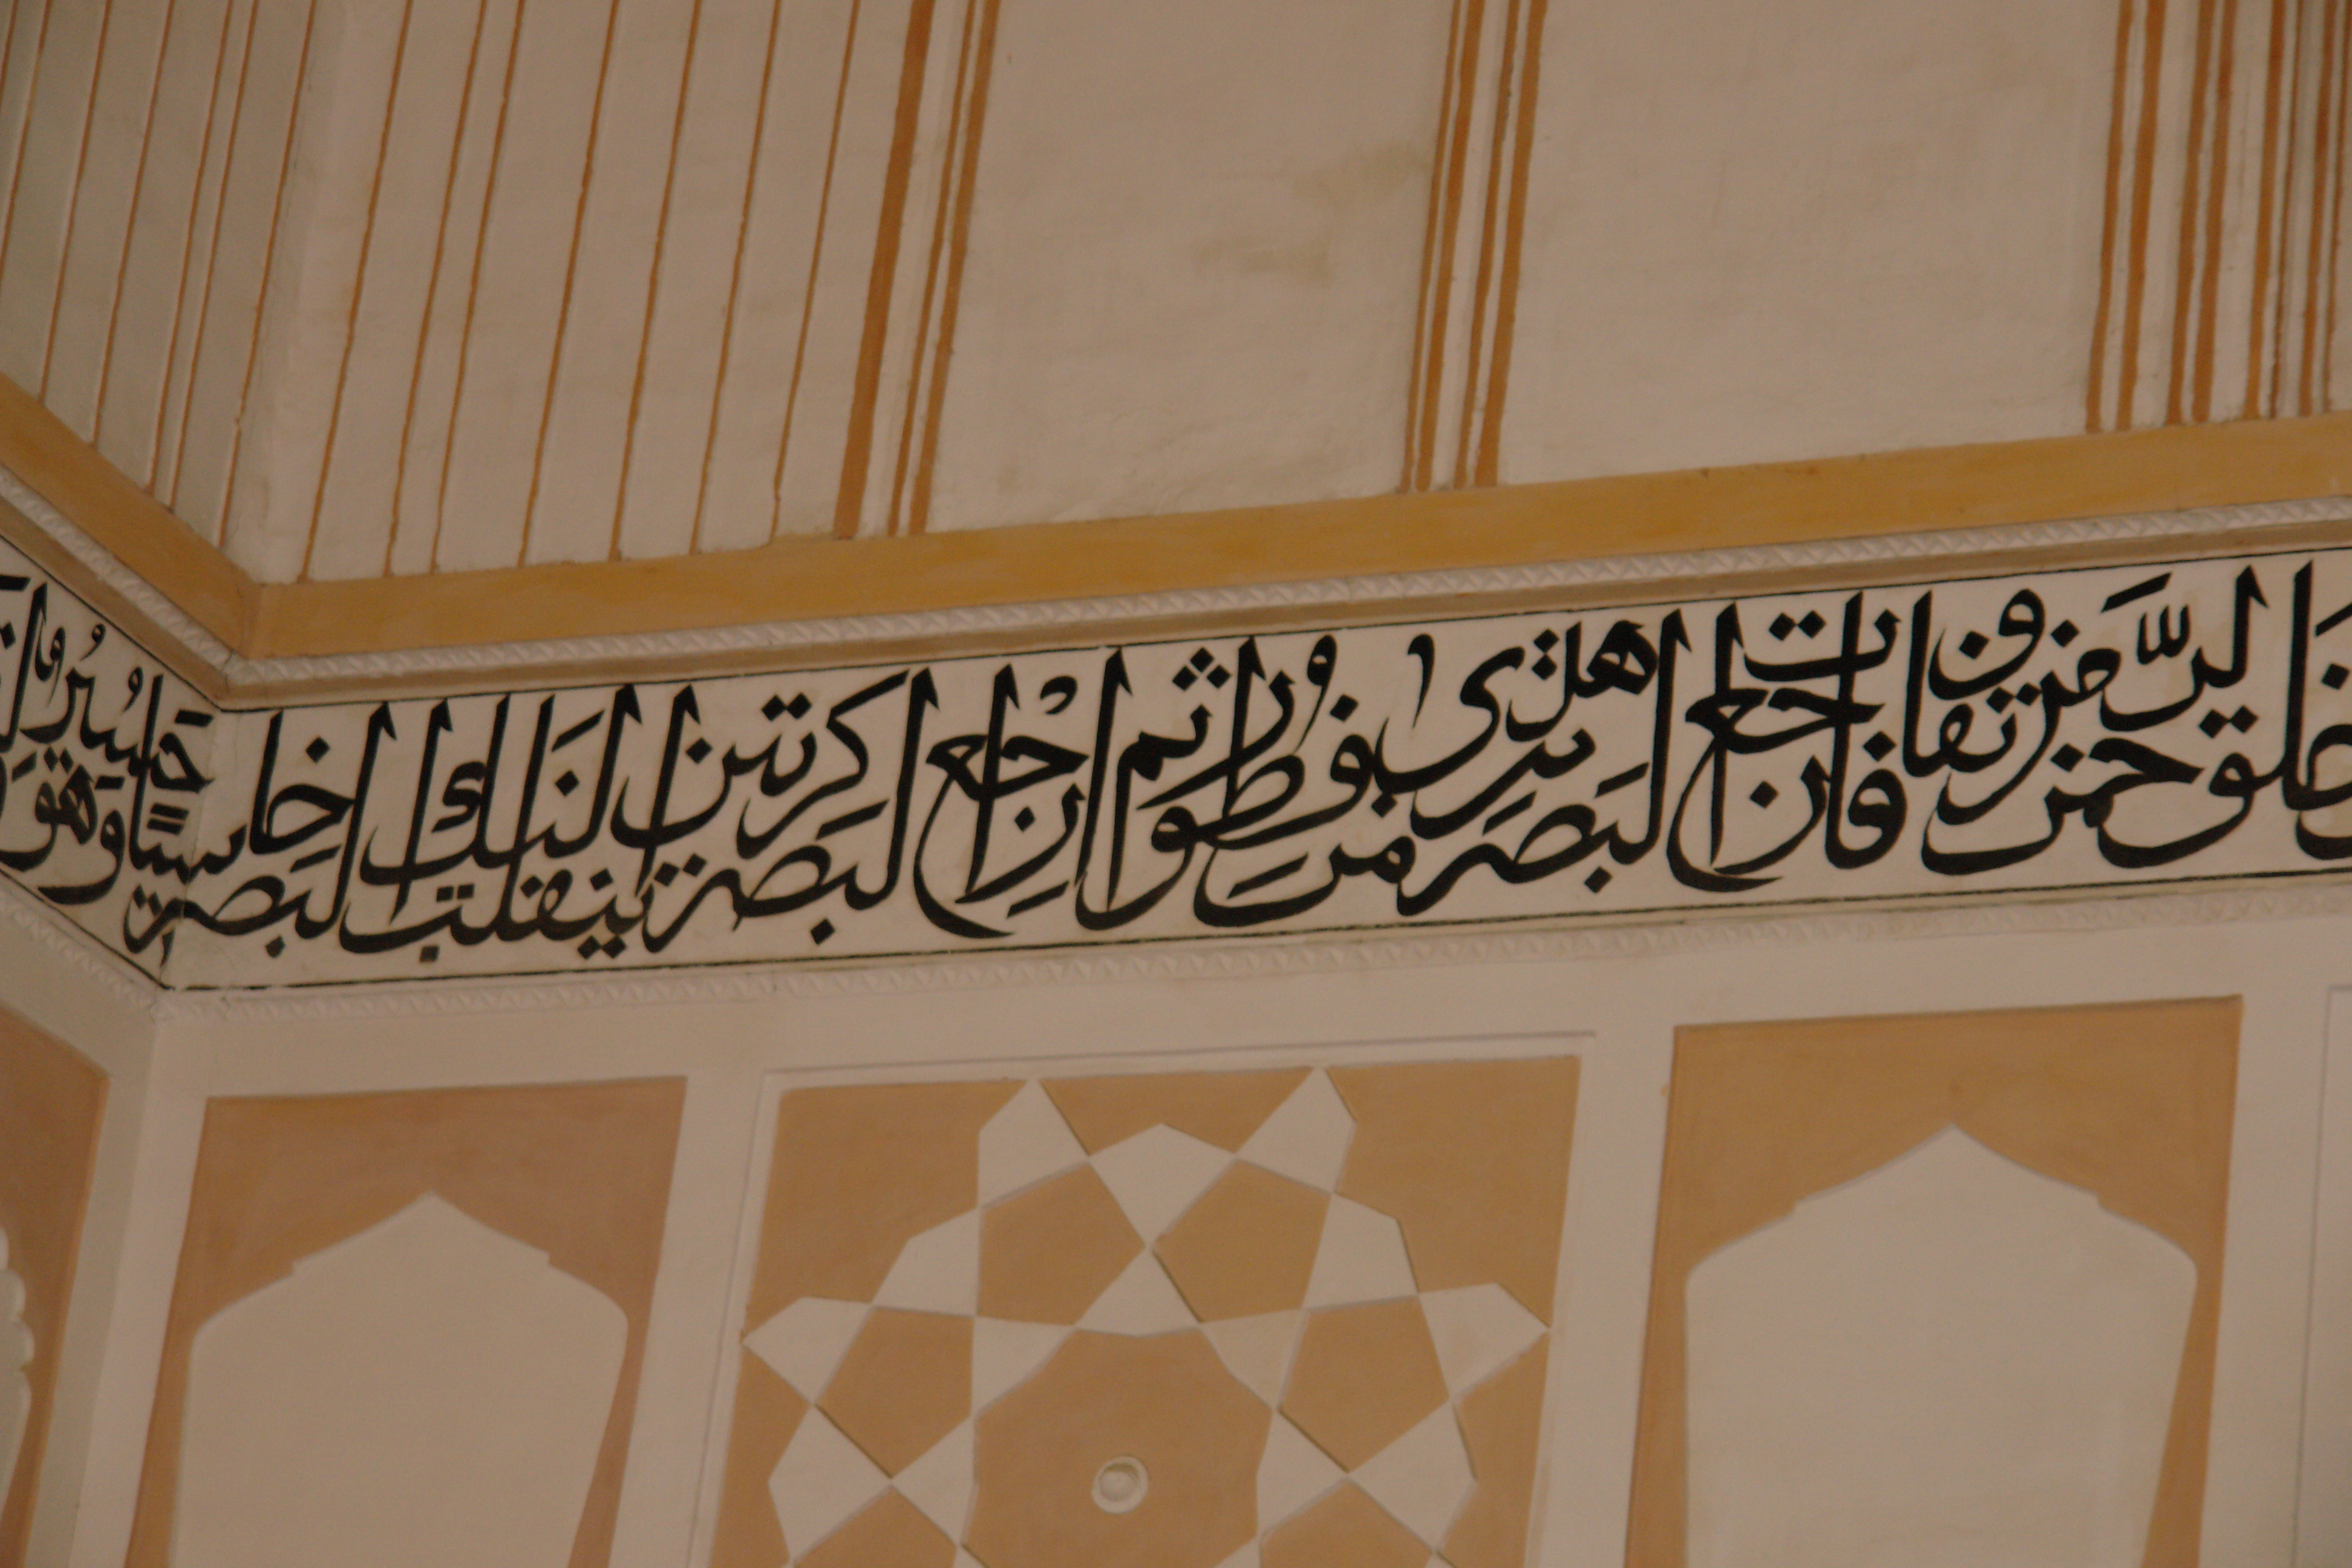 خلق الرحمن من تفاوت فارجع البصر هل ترى من فطور ثم ارجع البصر كرتين ينقلب اليك البصر خاسيا وهو حسير